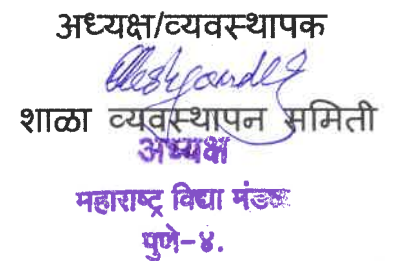 अध्यक्ष/व्यवस्थापक
शाळा व्यवस्थापन समिती
अध्यक्ष
महाराष्ट्र विद्या मंडळ
पुणे-४.